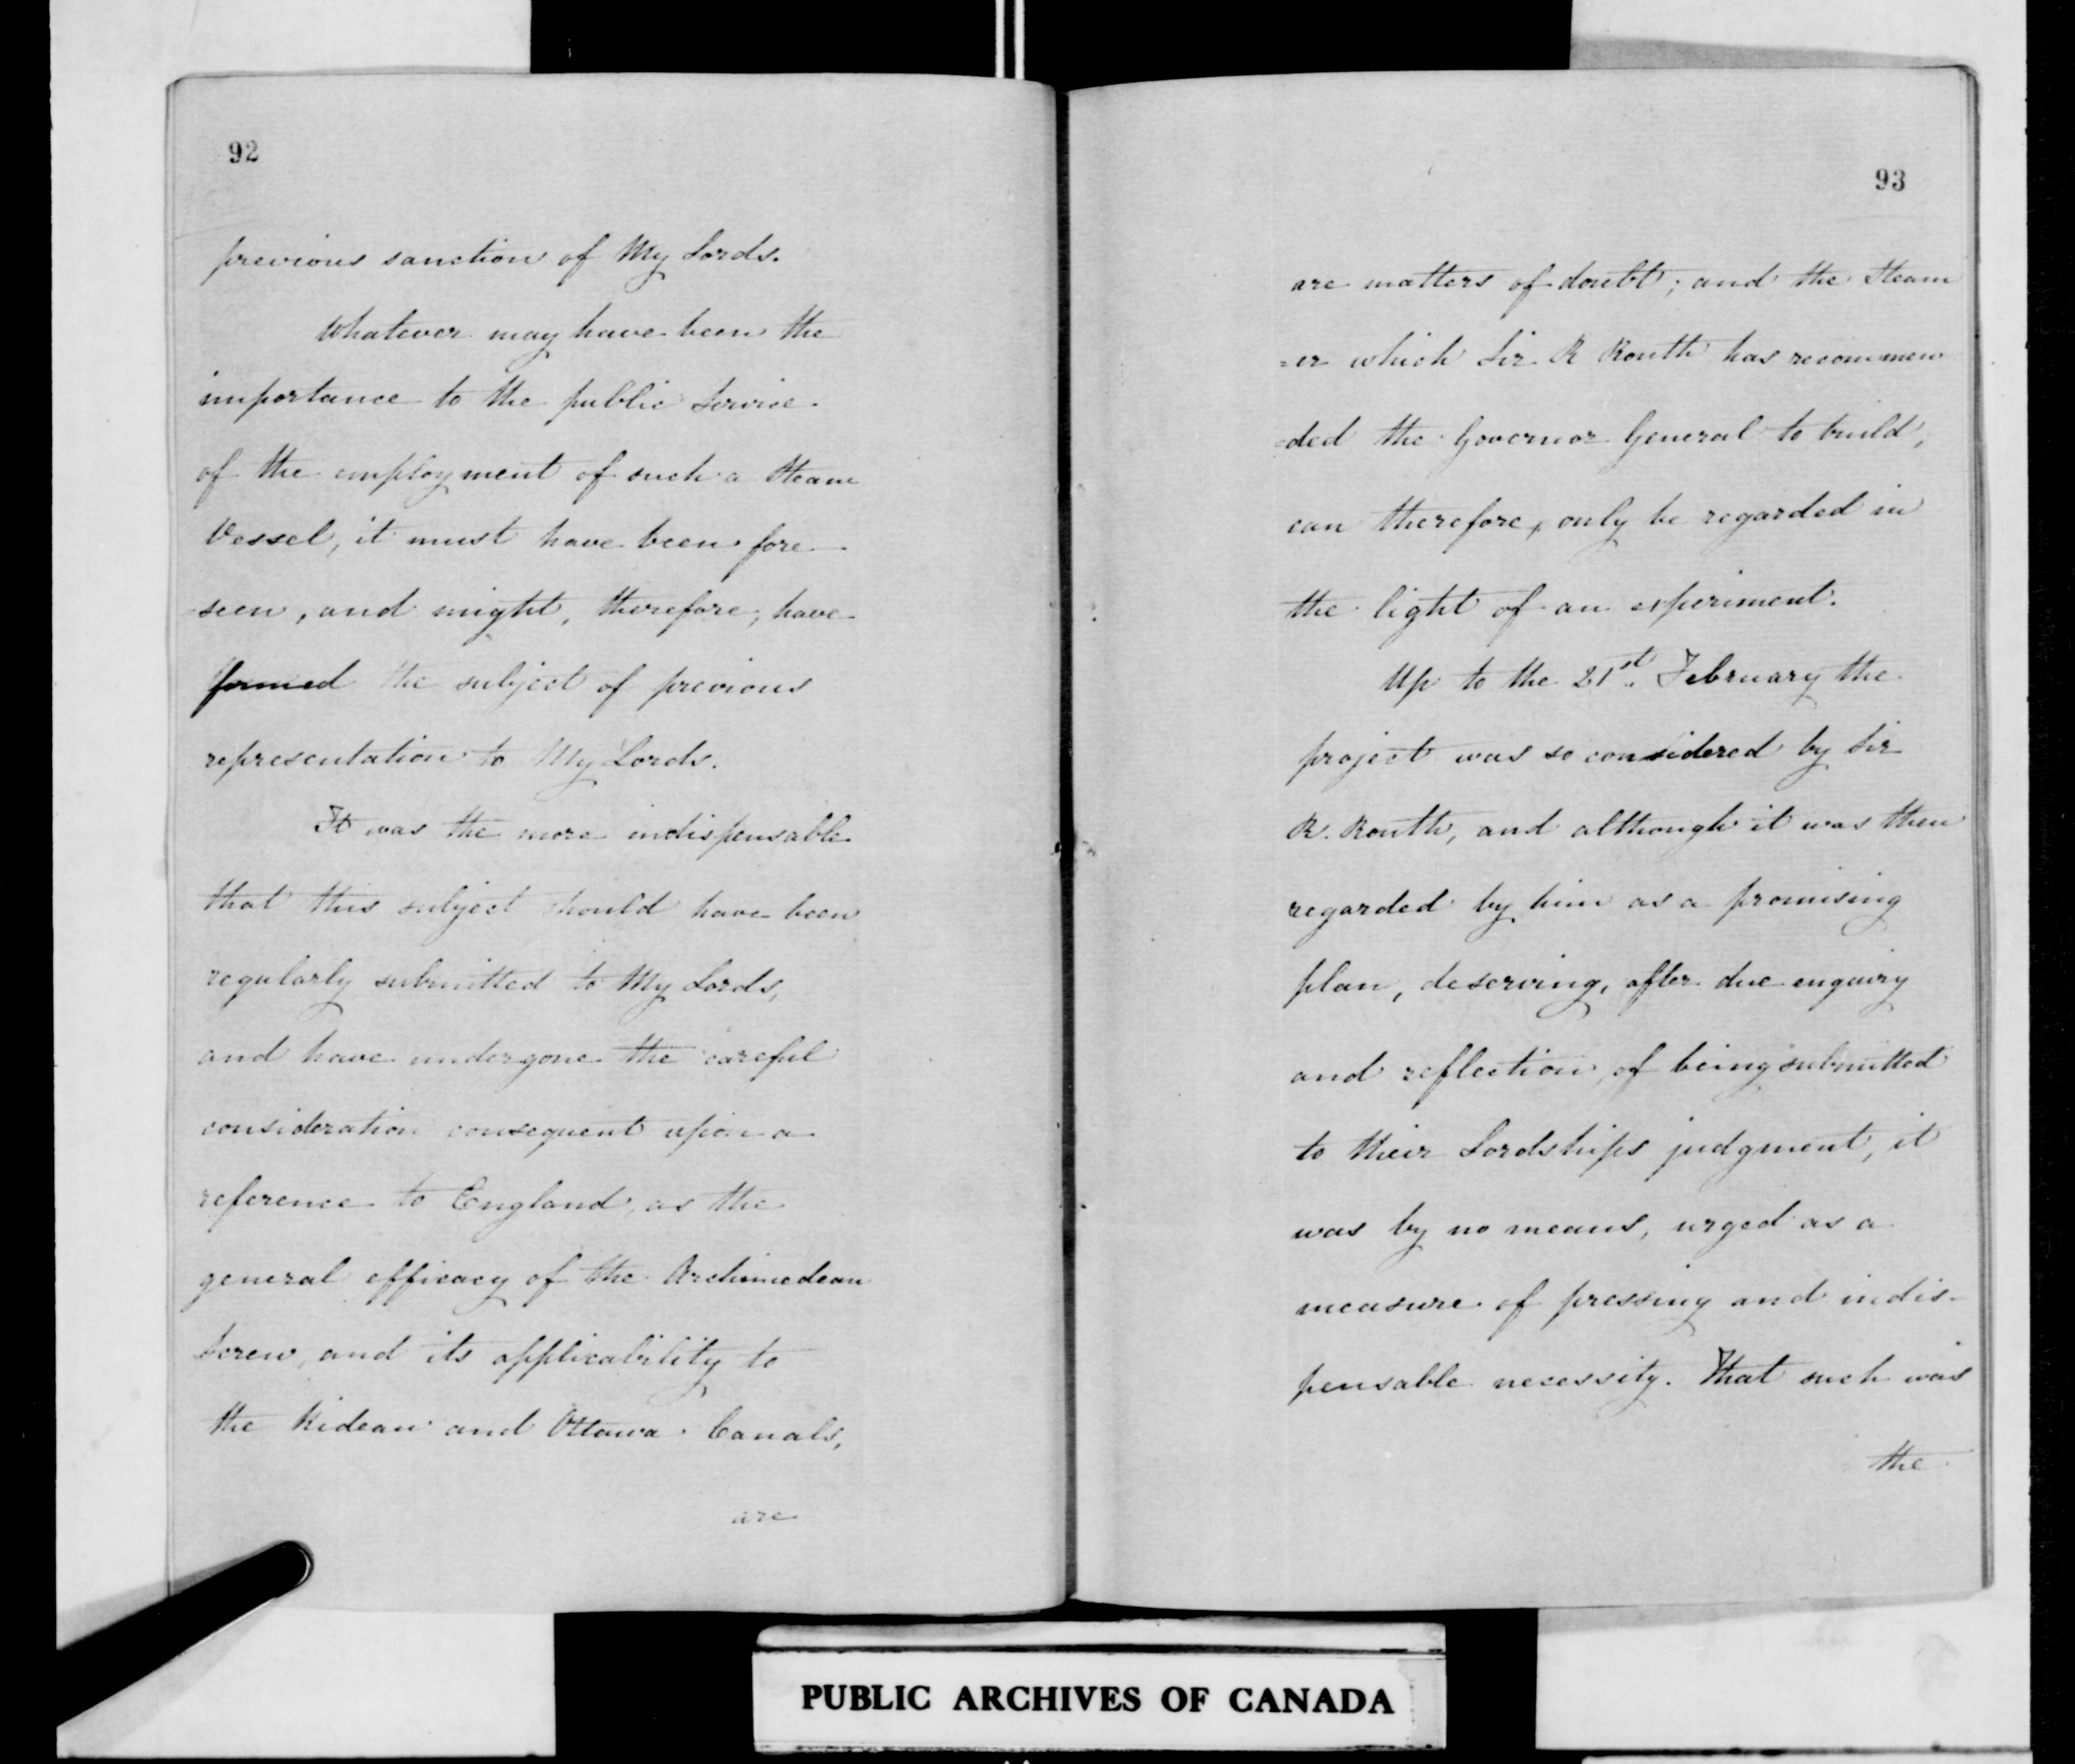 92
previous sanction of My Lords.
Whatever may have been the
importance to the public Service
of the employment of such a Steam
Vessel, it must have been fore
-seen, and might, therefore, have
formed the subject of previous
representation to My Lords.
It was the more indispensable
that this subject should have been
regularly submitted to My Lords,
and have undergone the careful
consideration consequent upon a
reference to England, as the
general efficacy of the Archimedean
Screw, and its applicability to
the Rideau and Ottawa Canals,
are
93
are matters of doubt; and the Steam
=er which Sir R Routh has recommen
=ded the Governor General to build,
can therefore, only be regarded in
the light of an experiment.
Up to the 21st. February the
project was so considered by Sir
R. Routh, and although it was then
regarded by him as a promising
plan, deserving, after due enquiry
and reflection, of being submitted
to their Lordships judgment, it
was by no means, urged as a
measure of pressing and indis-
pensable necessity. That such was
the
PUBLIC ARCHIVES OF CANADA